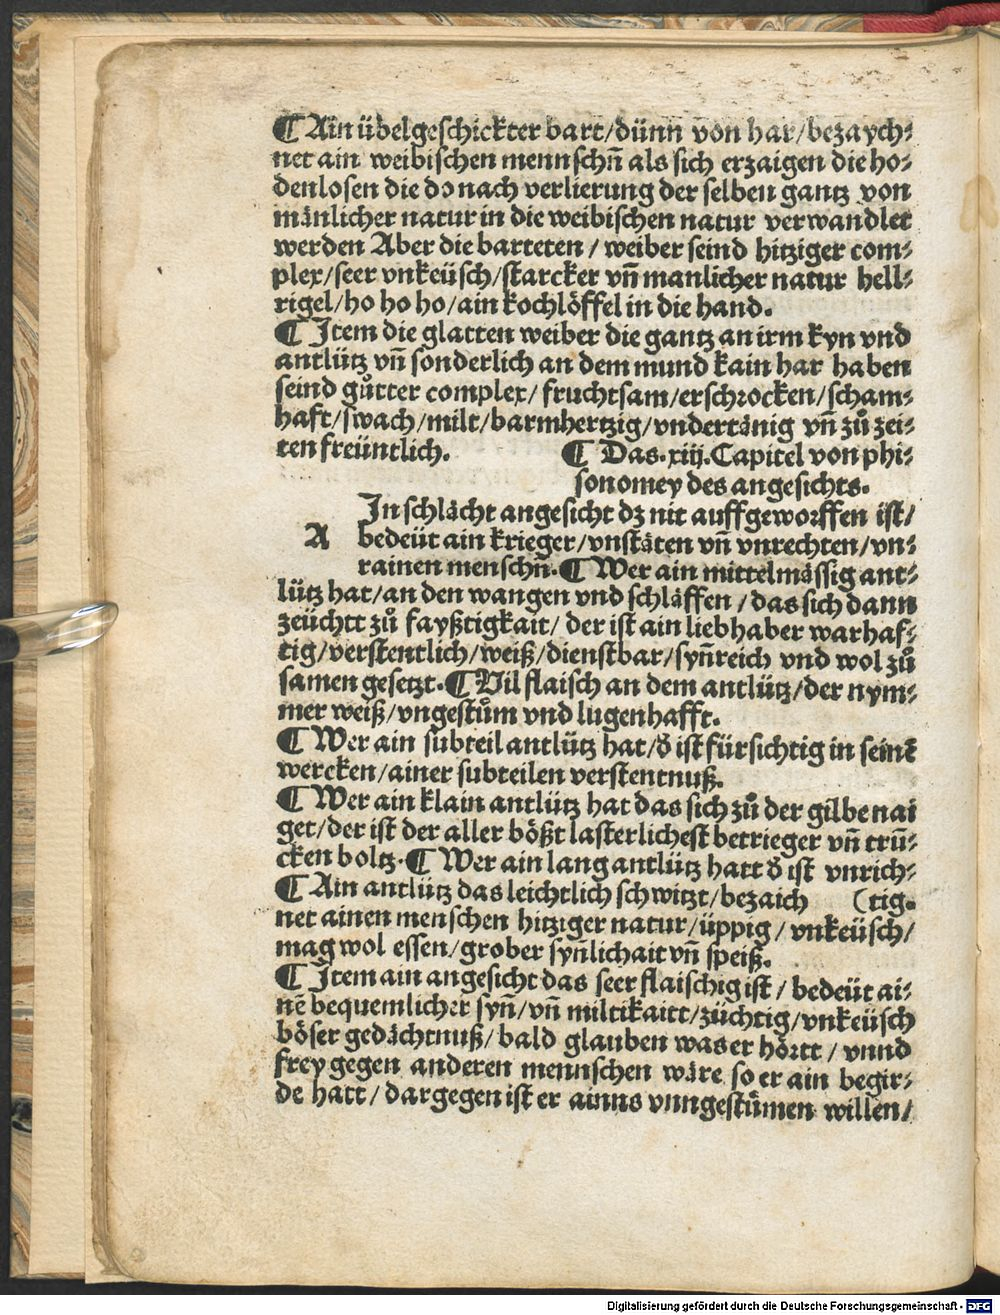 ¶ Ain übelgeschickter bart/dünn von har/bezaych⸗
net ain weibischen mennschñ als sich erzaigen die ho⸗
denlosen die do nach verlierung der selben gantz von
mänlicher natur in die weibischen natur verwandlet
werden Aber die barteten/weiber seind hitziger com⸗
plex/seer vnkeüsch/starcker vñ manlicher natur hell⸗
rigel/ho ho ho/ain kochlöffel in die hand.
¶ Item die glatten weiber die gantz an irm kyn vnd
antlütz vñ sonderlich an dem mund kain har haben
seind gůtter complex/fruchtsam/erschrocken/scham⸗
haft/swach/milt/barmhertzig/vndertänig vñ zů zei⸗
ten freüntlich.
¶ Das.xiij.Capitel von phi⸗
sonomey des angesichts.
A
In schlächt angesicht dz nit auffgeworffen ist/
bedeüt ain krieger/vnstäten vñ vnrechten/vn⸗
rainen menschñ.¶ Wer ain mittelmässig ant⸗
lütz hat/an den wangen vnd schläffen/das sich dann
zeüchtt zů fayßtigkait/der ist ain liebhaber warhaf⸗
tig/verstentlich/weiß/dienstbar/syñreich vnd wol zů
samen gesetzt.¶ Vil flaisch an dem antlütz/der nym⸗
mer weiß/vngestům vnd lugenhafft.
¶ Wer ain subteil antlütz hat/d̕ ist fürsichtig in seinē
wercken/ainer subteilen verstentnuß.
¶ Wer ain klain antlütz hat das sich zů der gilbe nai
get/der ist der aller bößt lasterlichest betrieger vñ trū⸗
cken boltz.¶ Wer ain lang antlütz hatt d̕ ist vnrich⸗
¶ Ain antlütz das leichtlich schwitzt/bezaich (tig.
net ainen menschen hitziger natur/üppig/vnkeüsch/
mag wol essen/grober syñlichait vñ speiß.
¶ Item ain angesicht das seer flaischig ist/bedeüt ai⸗
nē bequemlicher syñ/vñ miltikaitt/züchtig/vnkeüsch
böser gedächtnuß/bald glauben was er hörtt/vnnd
frey gegen anderen mennschen wäre so er ain begir⸗
de hatt/dargegen ist er ainns vnngestůmen willen/
Digitalisierung gefördert durch die Deutsche Forschungsgemeinschaft - DFG